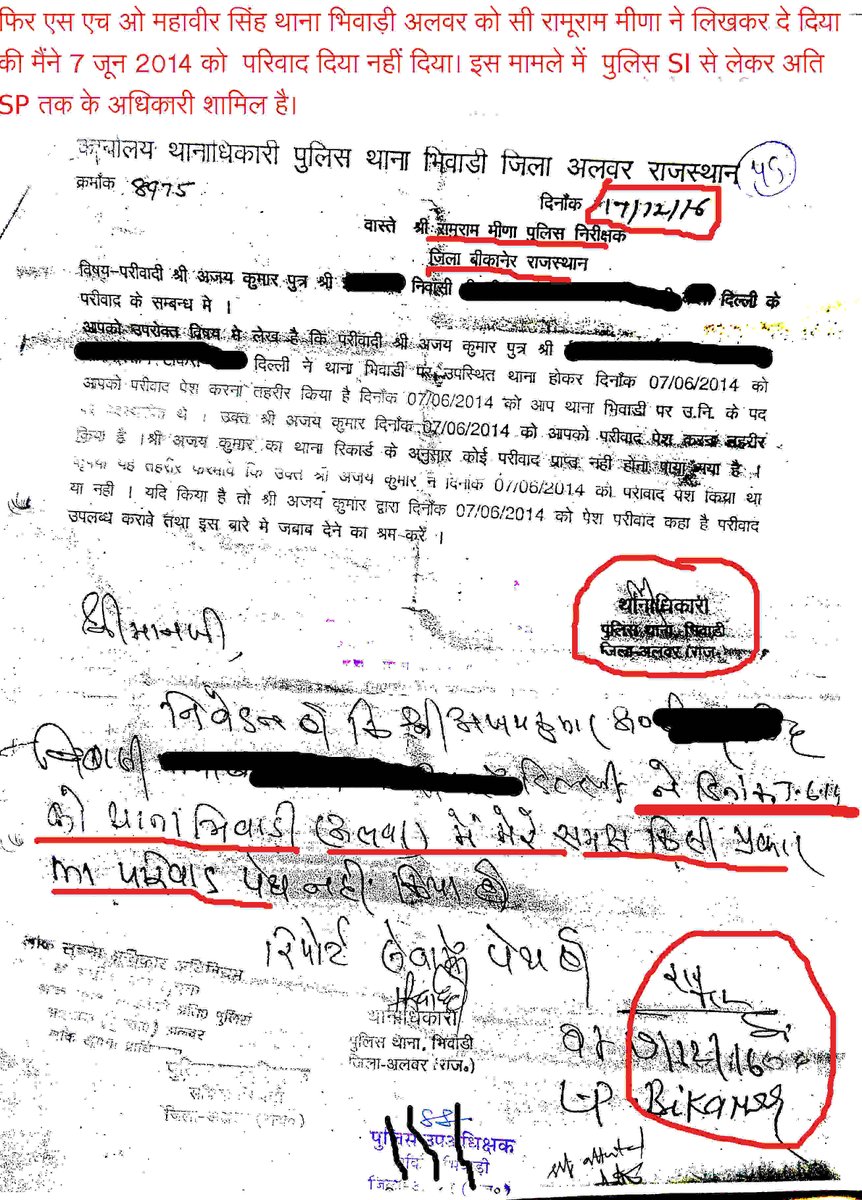 फिर एस एच ओ महावीर सिंह थाना भिवाड़ी अलवर को सी रामूराम मीणा ने लिखकर दे दिया
की मैंने 7 जून 2014 को परिवाद दिया नहीं दिया। इस मामले में पुलिस SI से लेकर अति
SP तक के अधिकारी शामिल है।
कार्यालय थानाधिकारी पुलिस थाना भिवाडी जिला अलवर राजस्थान
45
क्रमाँक 8975
दिनाँक 17/12/16
वास्ते श्री रामुराम मीणा पुलिस निरीक्षक
जिला बीकानेर राजस्थान
विषय-परीवादी श्री अजय कुमार पुत्र श्री निवासी दिल्ली के
परीवाद के सम्बन्ध मे ।
आपको उपरोक्त विषय मे लेख है कि परीवादी श्री अजय कुमार पुत्र श्री
दिल्ली ने थाना भिवाडी पर उपस्थित थाना होकर दिनाँक 07/06/2014 को
आपको परीवाद पेश करना तहरीर किया है दिनाँक 07/06/2014 को आप थाना भिवाडी पर उ.नि. के पद
पर थे । उक्त श्री अजय कुमार दिनाँक 07/06/2014 को आपको परीवाद पेश करना तहरीर
किया है ।श्री अजय कुमार का थाना रिकार्ड के अनुसार कोई परीवाद प्राप्त नही होना पाया गया है ।
कृपया यह तहरीर फरमावे कि उक्त श्री अजय कुमार ने दिनाँक 07/06/2014 को परीवाद पेश किया था
या नही । यदि किया है तो श्री अजय कुमार द्वारा दिनाँक 07/06/2014 को पेश परीवाद कहा है परीवाद
उपलब्ध करावे तथा इस बारे मे जबाब देने का श्रम करें ।
थानाधिकारी
पुलिस थाना, भिवाडी
जिला-अलवर (राज.
श्रीमानजी,
निवेदन है कि श्री अजय कुमार
निवासी दिल्ली ने दिनांक 7-6-14
को थाना भिवाडी (अलवर) में मेरे समक्ष किसी प्रकार
का परिवाद पेश नहीं किया है
रिपोर्ट सेवामें पेश है
थानाधिकारी
पुलिस थाना, भिवाडी
जिला-अलवर (राज.)
लोक सूचना अधिकार अधिनियम
अलवर
Bikaner
पुलिस उपअधीक्षक